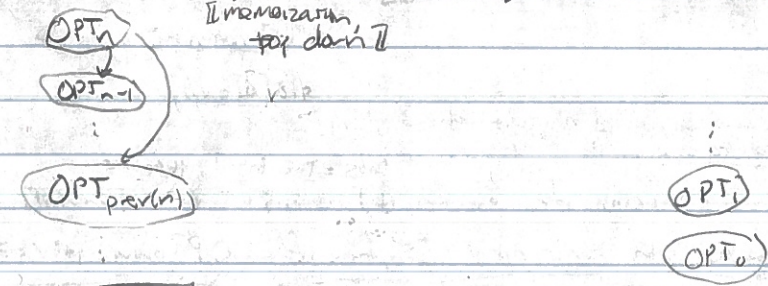 OPT_n
[[memoization,
top down]]
OPT_n-1
⋮
⋮
OPT_prev(n)
OPT_1
OPT_0
⋮